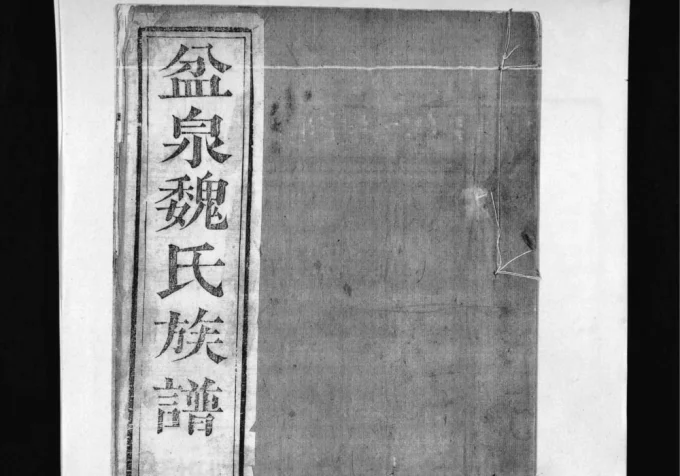 盆泉魏氏族譜